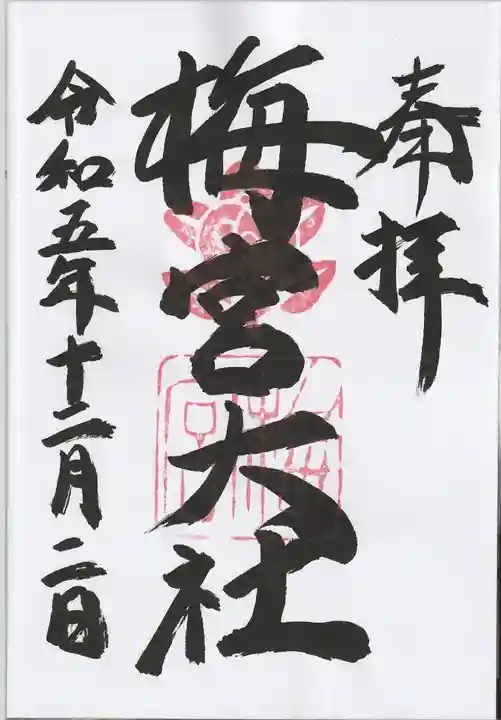 奉拝
梅宮大社
令和五年十二月二日